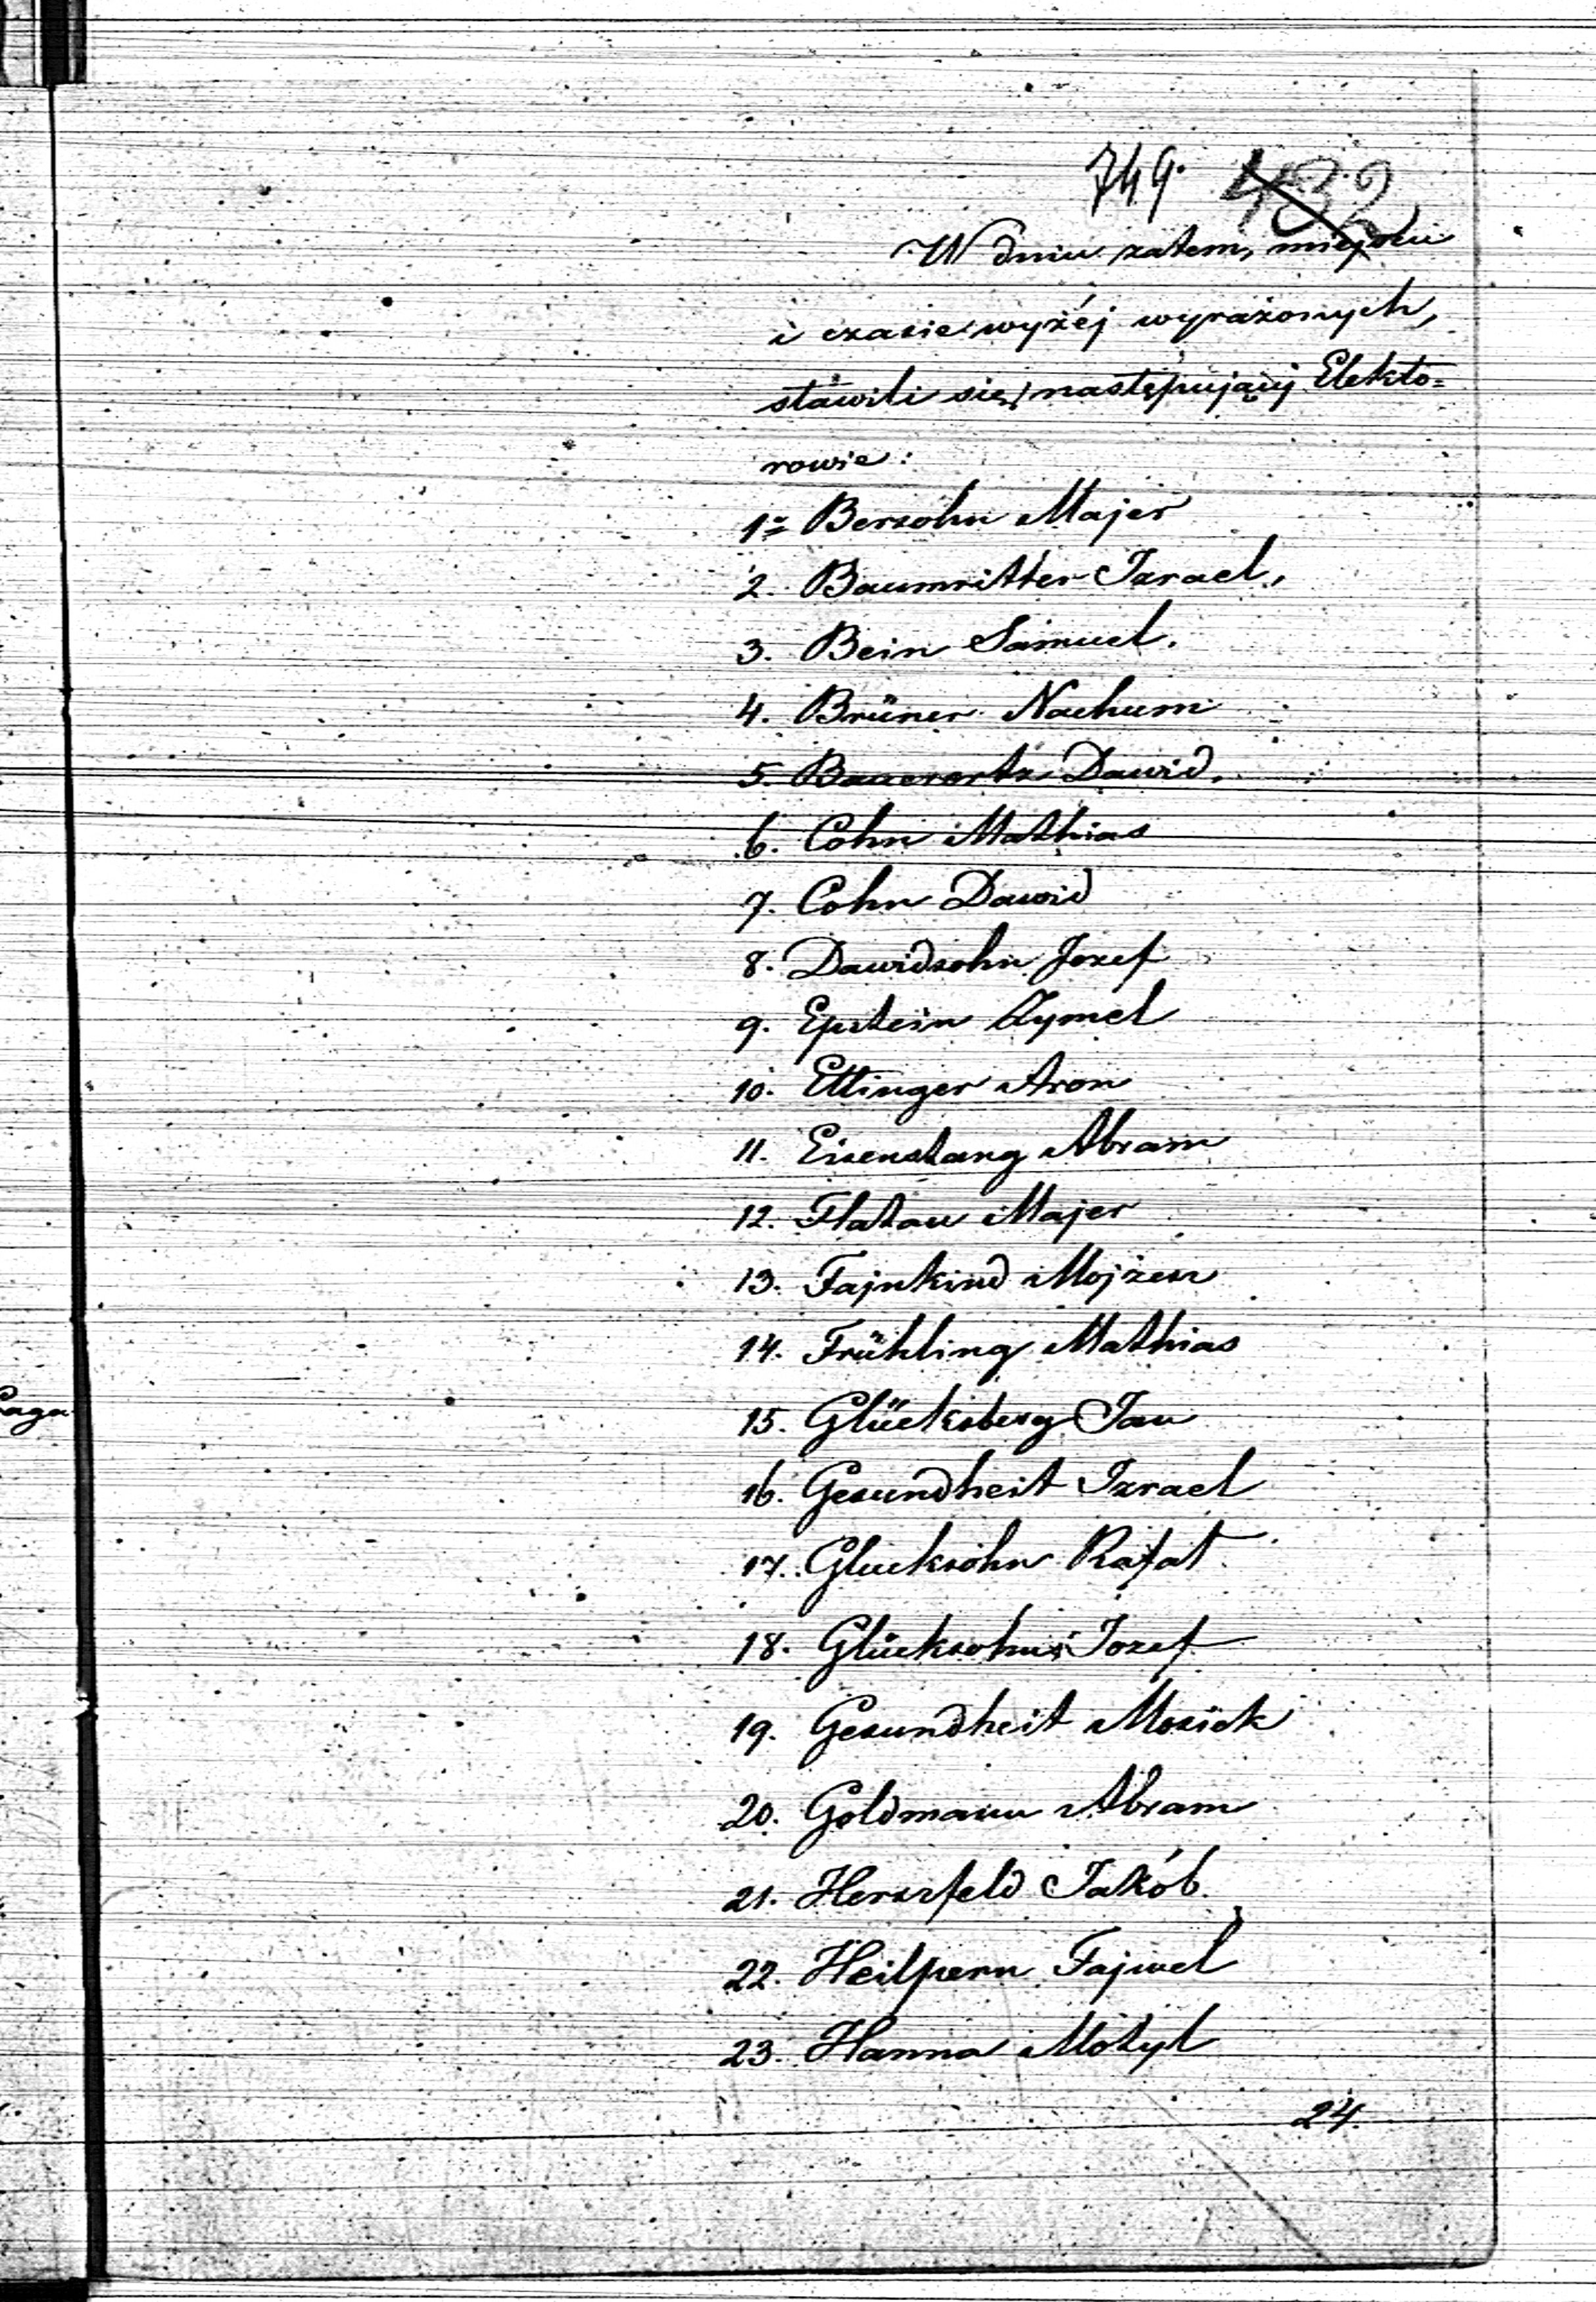 749. 432
W dniu zatem, miejscu
i czasie wyżéj wyrażonych,
stawili się następujący Elekto=
rowie:
1= Bersohn Majer
2. Baumritter Izrael,
3. Bein Samuel.
4. Brüner Nachum
5. Bauerertz Dawid.
6. Cohn Mathias
7. Cohn Dawid
8. Dawidsohn Jozef
9. Epstein Zymel
10. Ettinger Aron
11. Eisenstang Abram
12. Flatau Majer
13. Fajnkind Mojżesz
14. Frühling Mathias
15. Glücksberg Jan
16. Gesundheit Izrael
17. Glucksohn Rafał
18. Glücksohn Jozef
19. Gesundheit Mosiek
20. Goldmann Abram
21. Herszfeld Jakób.
22. Heilpern Fajwel
23. Hanna Motyl
24.